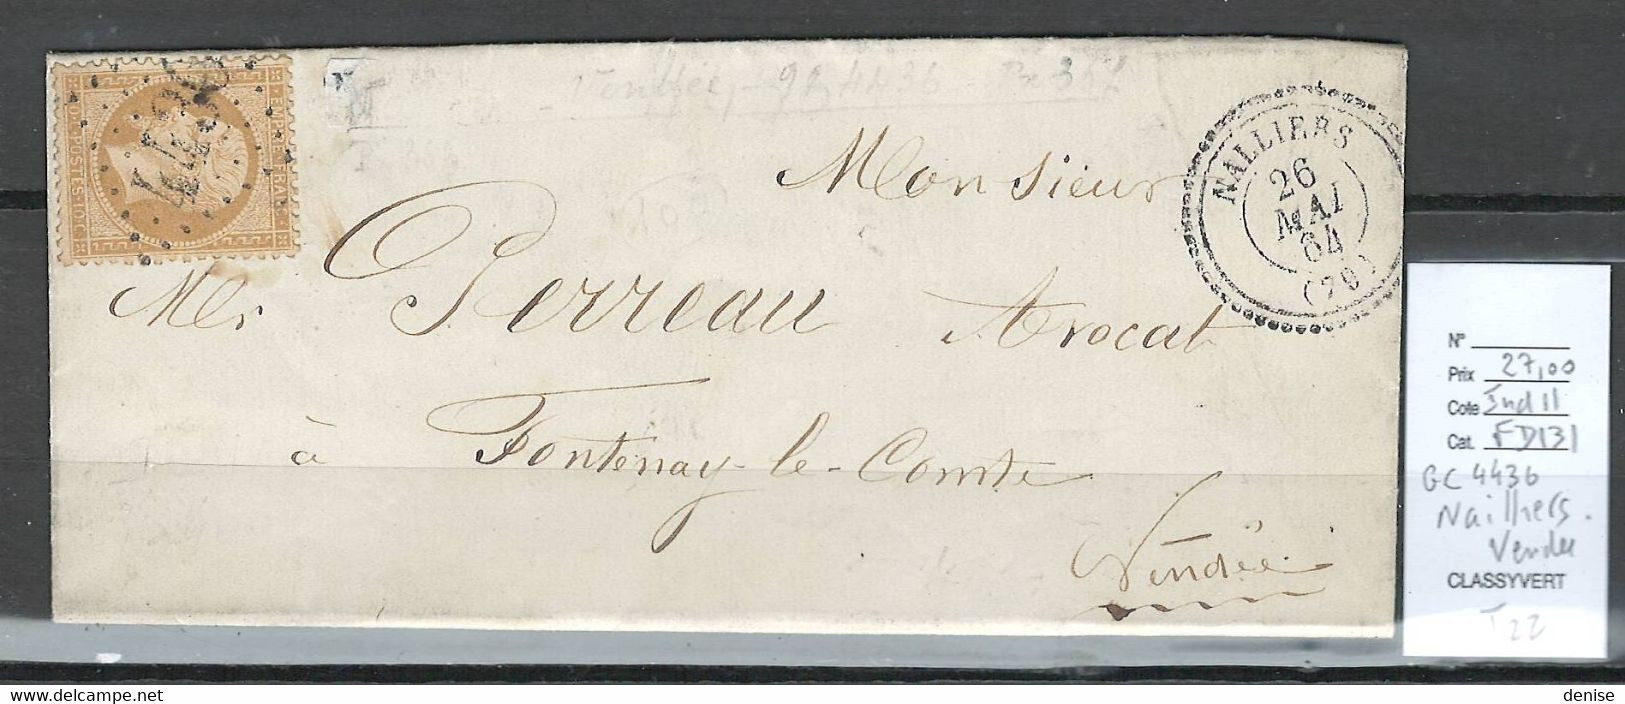 EMPIRE FRANC
POSTES 10 C
4436
Vendée gc 4436
Monsieur
NALLIERS
26
MAI
64
(79)
Mlr Perreau Avocat
à Fontenay-le-Comte
Vendée
N°
Prix 27,00
Cote Ind 11
Cat. FD131
GC 4436
Nailliers.
Vendee
CLASSYVERT
T22
www.delcampe.net
denise